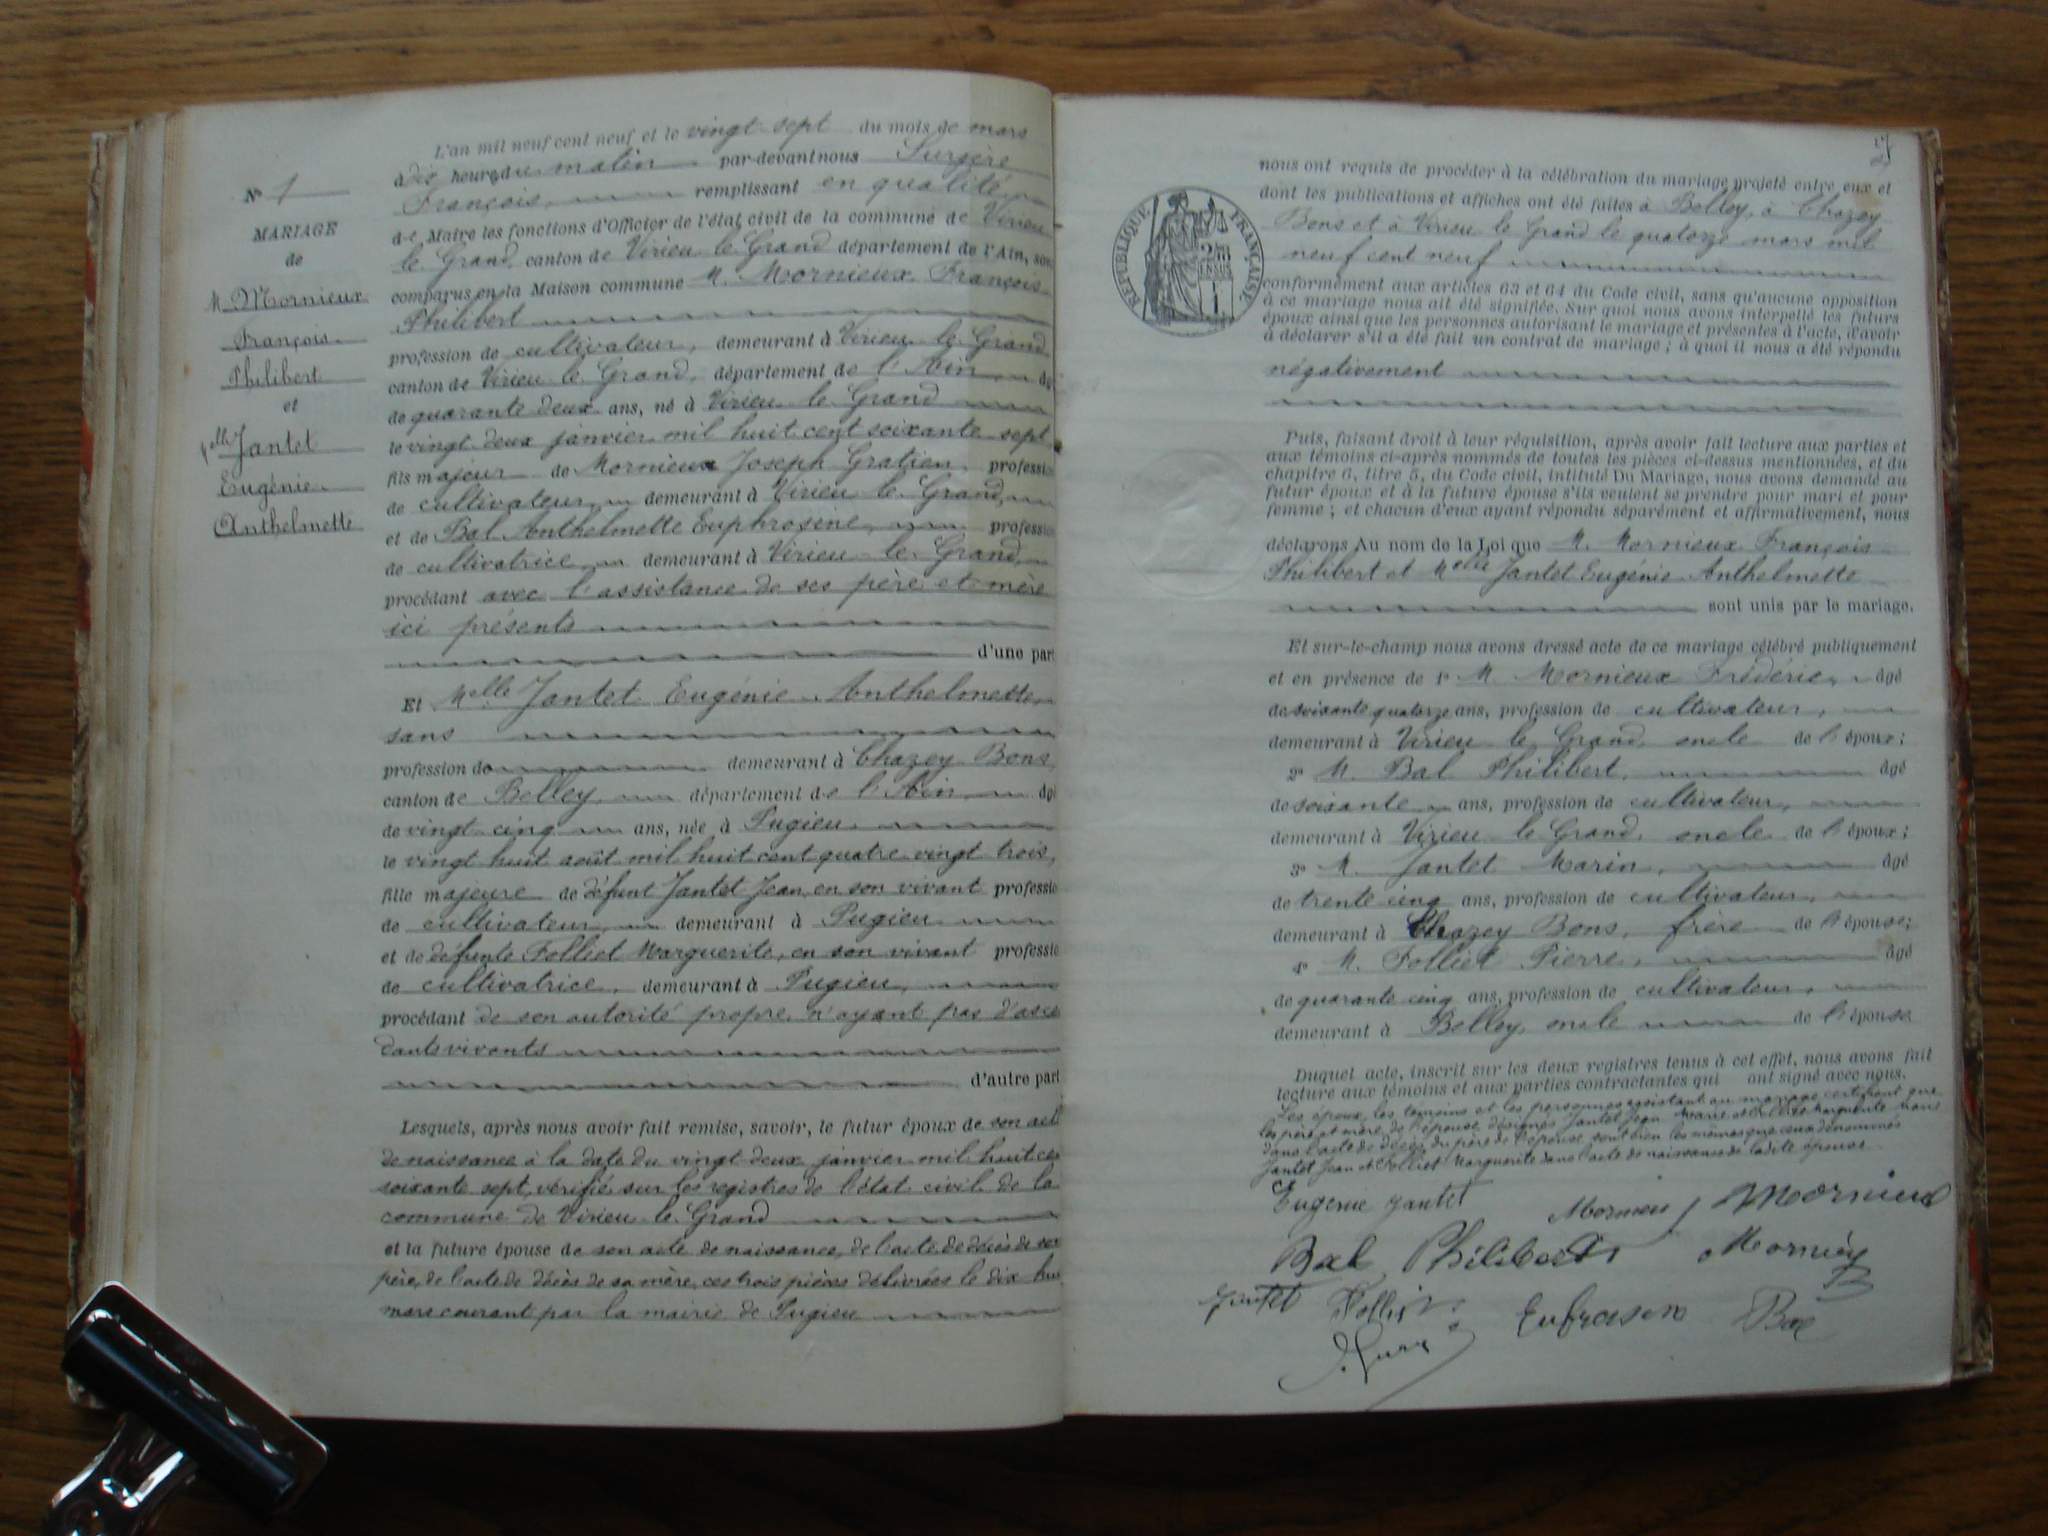 L'an mil neuf cent neuf et le vingt sept du mois de mars
à dix heures du matin par-devant nous Surgère
François, remplissant en qualité
de Maire les fonctions d'Officier de l'état civil de la commune de Virieu
le Grand, canton de Virieu le Grand département de l'Ain, sont
comparus en la Maison commune M. Mornieux François
Philibert
profession de cultivateur, demeurant à Virieu le Grand
canton de Virieu le Grand, département de l'Ain, âgé
de quarante deux ans, né à Virieu le Grand
le vingt deux janvier mil huit cent soixante sept
fils majeur de Mornieux Joseph Gratien, profession
de cultivateur, demeurant à Virieu le Grand,
et de Bal Anthelmette Euphrosine, profession
de cultivatrice, demeurant à Virieu le Grand,
procédant avec l'assistance de ses père et mère
ici présents
d'une part
Et Melle Jantet Eugénie Anthelmette,
sans
profession de demeurant à Chazey Bons,
canton de Belley, département de l'Ain, âgé
de vingt cinq ans, née à Pugieu
le vingt huit août mil huit cent quatre vingt trois,
fille majeure de défunt Jantet Jean, en son vivant professio
de cultivateur, demeurant à Pugieu
et de défunte Folliet Marguerite, en son vivant professio
de cultivatrice, demeurant à Pugieu,
procédant de son autorité propre n'ayant pas d'asce
dants vivants
d'autre part
Lesquels, après nous avoir fait remise, savoir, le futur époux de son acte
de naissance à la date du vingt deux janvier mil huit cen
soixante sept, vérifié sur les registres de l'état civil de la
commune de Virieu le Grand
et la future épouse de son acte de naissance, de l'acte de décès de son
père, de l'acte de décès de sa mère, ces trois pièces délivrées le dix hui
mars courant par la mairie de Pugieu
N° 1
MARIAGE
de
M. Mornieux
François
Philibert
et
Melle Jantet
Eugénie
Anthelmette
nous ont requis de procéder à la célébration du mariage projeté entre eux et
dont les publications et affiches ont été faites à Belley, à Chazey
Bons et à Virieu le Grand le quatorze mars mil
neuf cent neuf
RÉPUBLIQUE FRANÇAISE
conformément aux articles 63 et 64 du Code civil, sans qu'aucune opposition
à ce mariage nous ait été signifiée. Sur quoi nous avons interpellé les futurs
époux ainsi que les personnes autorisant le mariage et présentes à l'acte, d'avoir
à déclarer s'il a été fait un contrat de mariage ; à quoi il nous a été répondu
négativement
Puis, faisant droit à leur réquisition, après avoir fait lecture aux parties et
aux témoins ci-après nommés de toutes les pièces ci-dessus mentionnées, et du
chapitre 6, titre 5, du Code civil, intitulé Du Mariage, nous avons demandé au
futur époux et à la future épouse s'ils veulent se prendre pour mari et pour
femme ; et chacun d'eux ayant répondu séparément et affirmativement, nous
déclarons Au nom de la Loi que M. Mornieux François
Philibert et Melle Jantet Eugénie Anthelmette
sont unis par le mariage.
Et sur-le-champ nous avons dressé acte de ce mariage célébré publiquement
et en présence de 1° M. Mornieux Frédéric, âgé
de soixante quatorze ans, profession de cultivateur,
demeurant à Virieu le Grand, oncle de l'époux ;
2° M. Bal Philibert, âgé
de soixante ans, profession de cultivateur,
demeurant à Virieu le Grand, oncle de l'époux ;
3° M. Jantet Marin, âgé
de trente cinq ans, profession de cultivateur,
demeurant à Chazey Bons, frère de l'épouse ;
4° M. Folliet Pierre, âgé
de quarante cinq ans, profession de cultivateur,
demeurant à Belley, oncle de l'épouse
Duquel acte, inscrit sur les deux registres tenus à cet effet, nous avons fait
lecture aux témoins et aux parties contractantes qui ont signé avec nous.
Les époux, les témoins et les personnes assistant au mariage certifient que
les père et mère de l'épouse désignés Jantet Jean Marie et Folliet Marguerite
dans l'acte de décès du père de l'épouse sont bien les mêmes que ceux dénommés
Jantet Jean et Folliet Marguerite dans l'acte de naissance de ladite épouse
Eugénie Jantet Mornieux Mornieux
Bal Philibert Mornieux
Jantet Folliet Eufrasin Bal